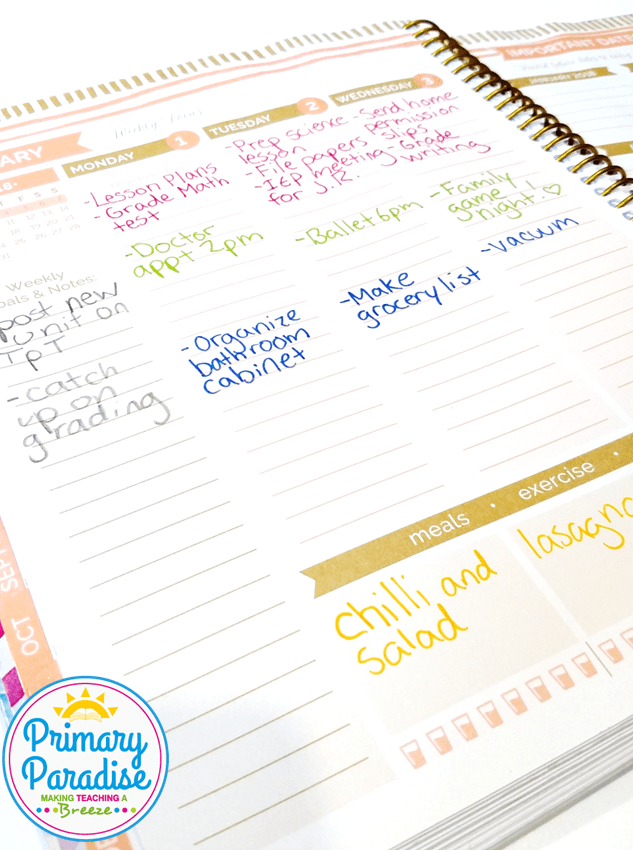 IMPORTANT DATES
JANUARY 2018
MONDAY 1
TUESDAY 2
WEDNESDAY 3
- Lesson Plans
- Grade Math
test
- Prep science
lesson
- File papers
- IEP meeting
for J.R.
- Send home
permission
slips
- Grade
writing
- Doctor
appt 2pm
- Ballet 6pm
- Family
game
night! ♡
- Organize
bathroom
cabinet
- Make
grocery list
- vacuum
Weekly
& Notes:
post new
unit on
TPT
- catch
up on
grading
meals • exercise •
chilli and
salad
OCT
Primary
Paradise
MAKING TEACHING A
Breeze